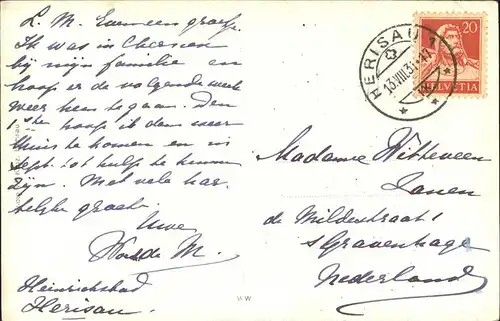 L. M. Even een groetje.
Ik was in Chersen
bij mijn familie en
hoop er de volgende week
weer heen te gaan. Den
1.sten hoop ik dan weer
thuis te komen en in
Sept. tot hulp te kunnen
zijn. Met vele har
telijke groet
Uwe
M.
Heinrichsbad
Herisau.
HERISAU 1
13.VIII.3
20
HELVETIA
Madame Witteveen
de Mildestraat 1
s Gravenhage
Nederland
WW